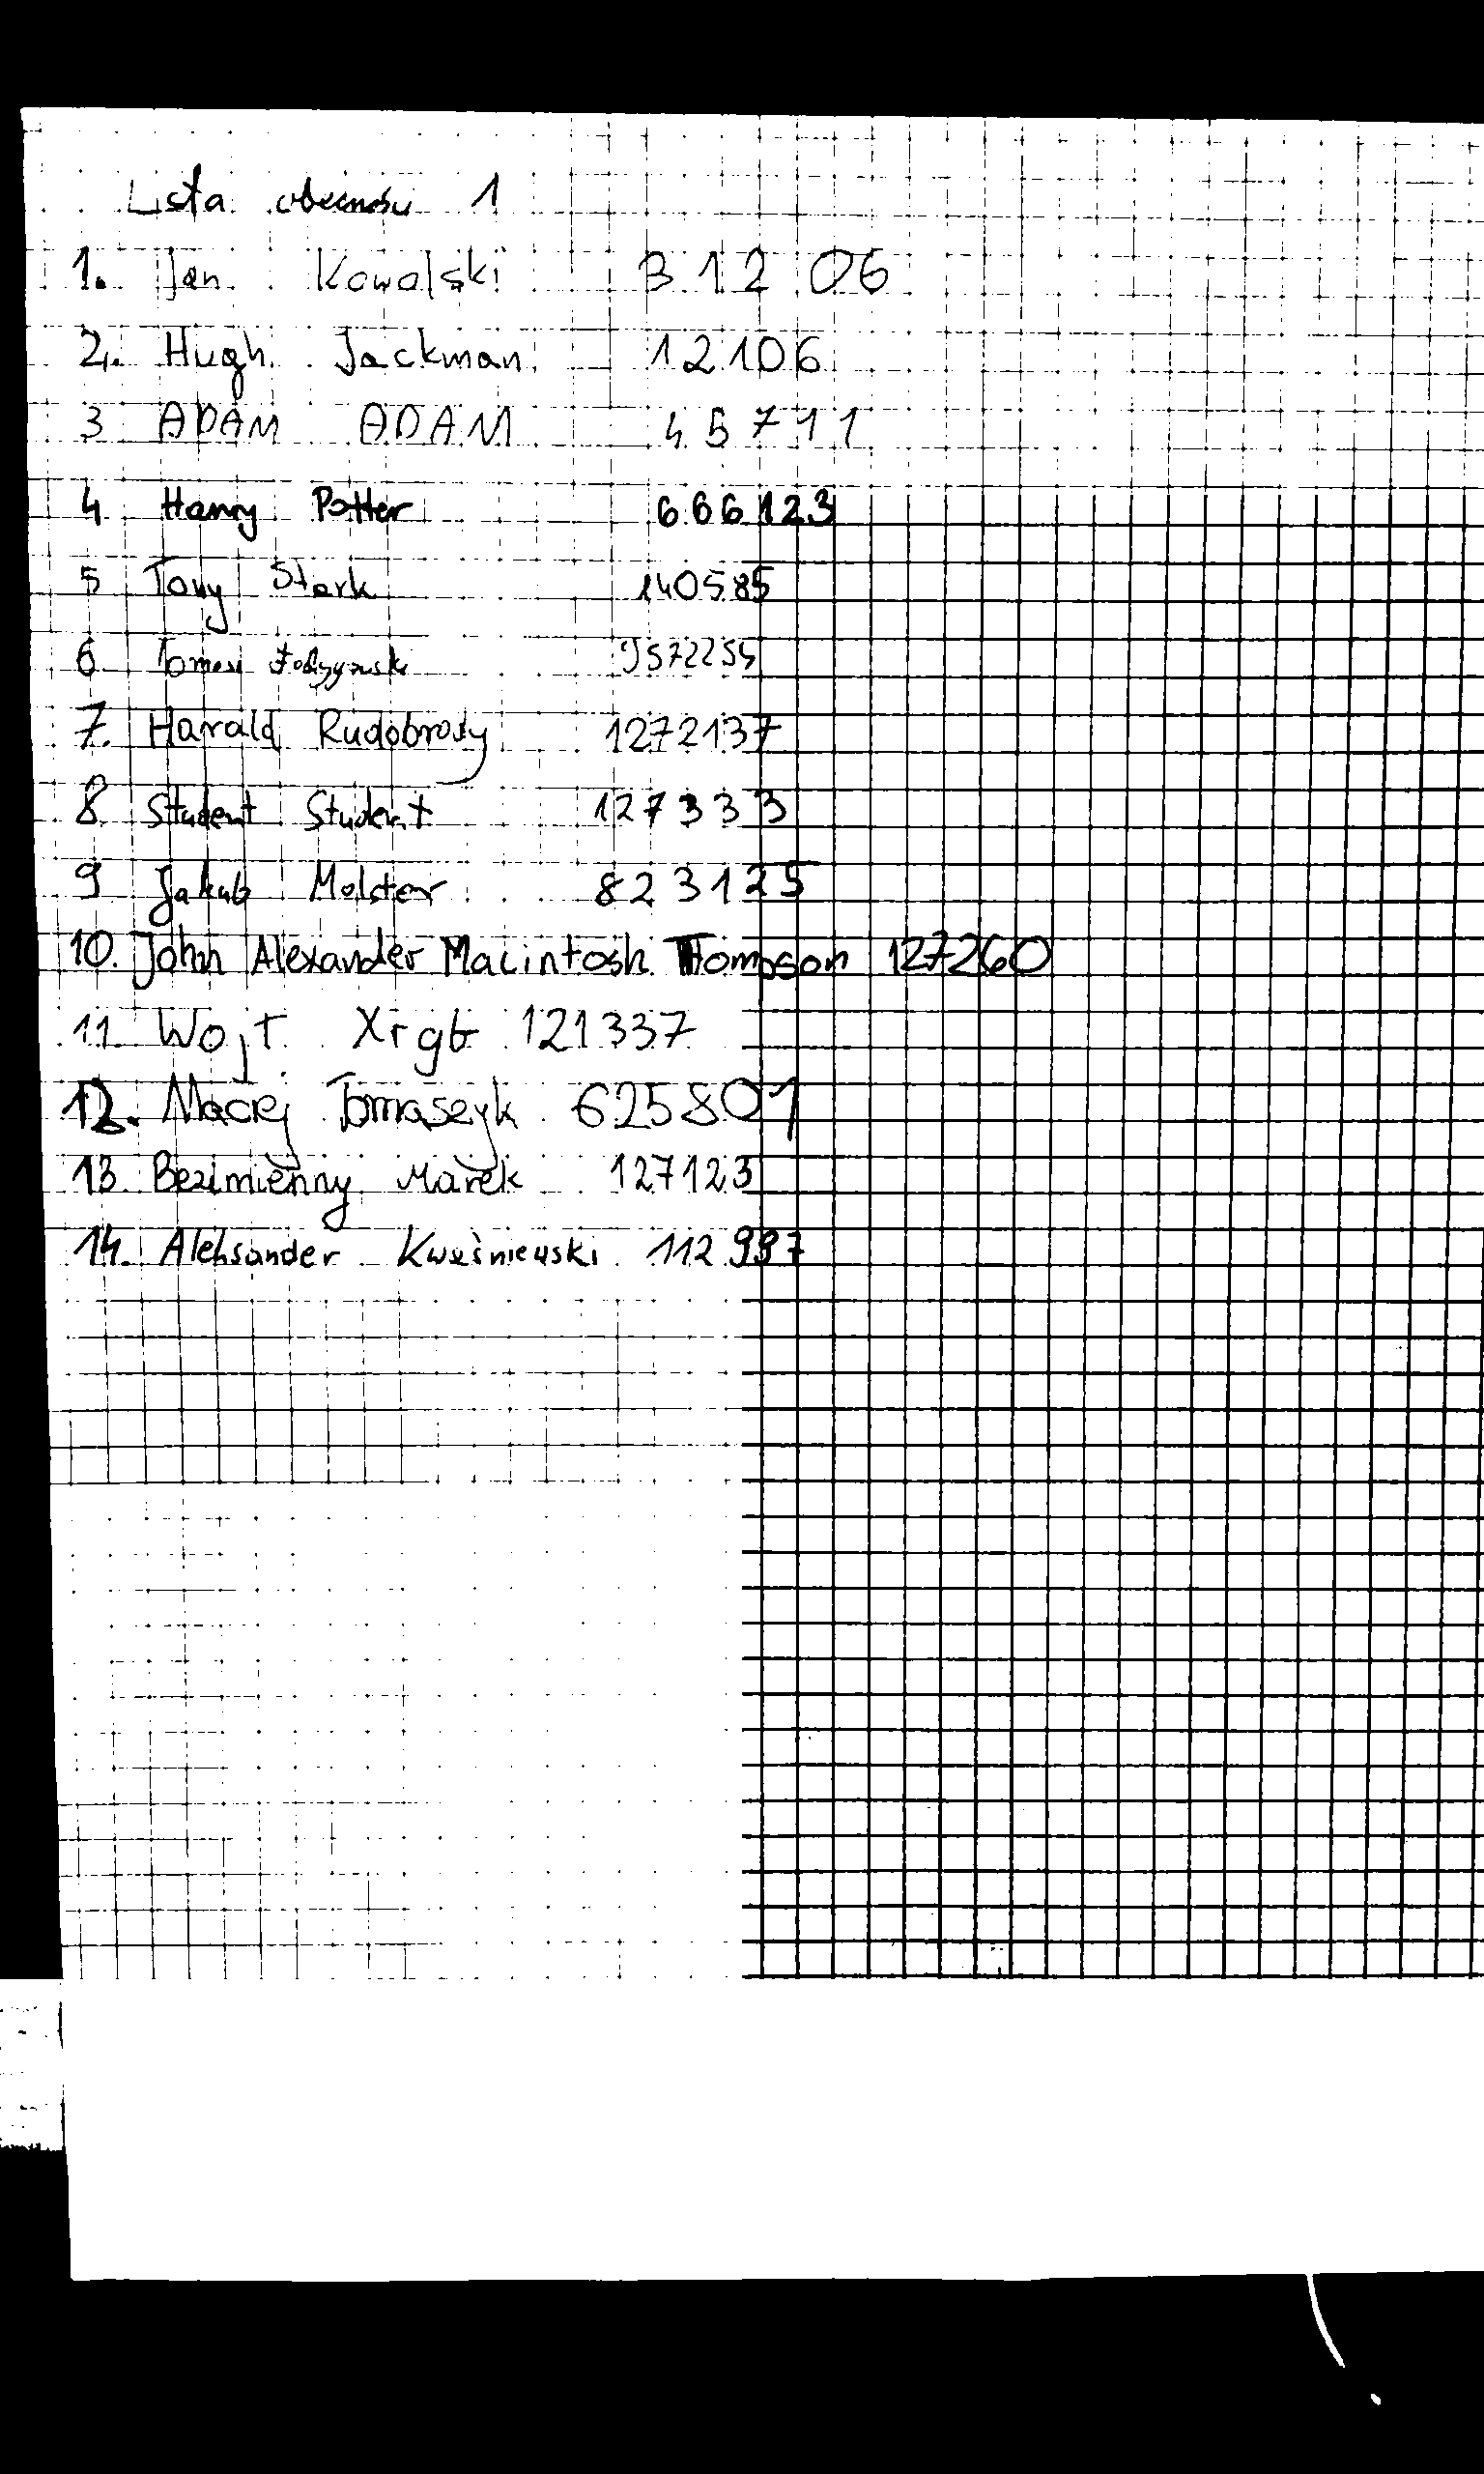 Lista obecności 1
1. Jan Kowalski 31206
2. Hugh Jackman 12106
3 ADAM ADAM 45711
4 Harry Potter 666123
5 Tony Stark 140585
6 Tomasz
7. Harald Rudobrody 1272137
8 Student Student 127333
9 Jakub Molster 823125
10. John Alexander Macintosh Thompson 127260
11. Wojt Xrgb 121337
12. Maciej Tomaszyk 625801
13. Bezimienny Marek 127123
14. Aleksander Kwaśniewski 112997